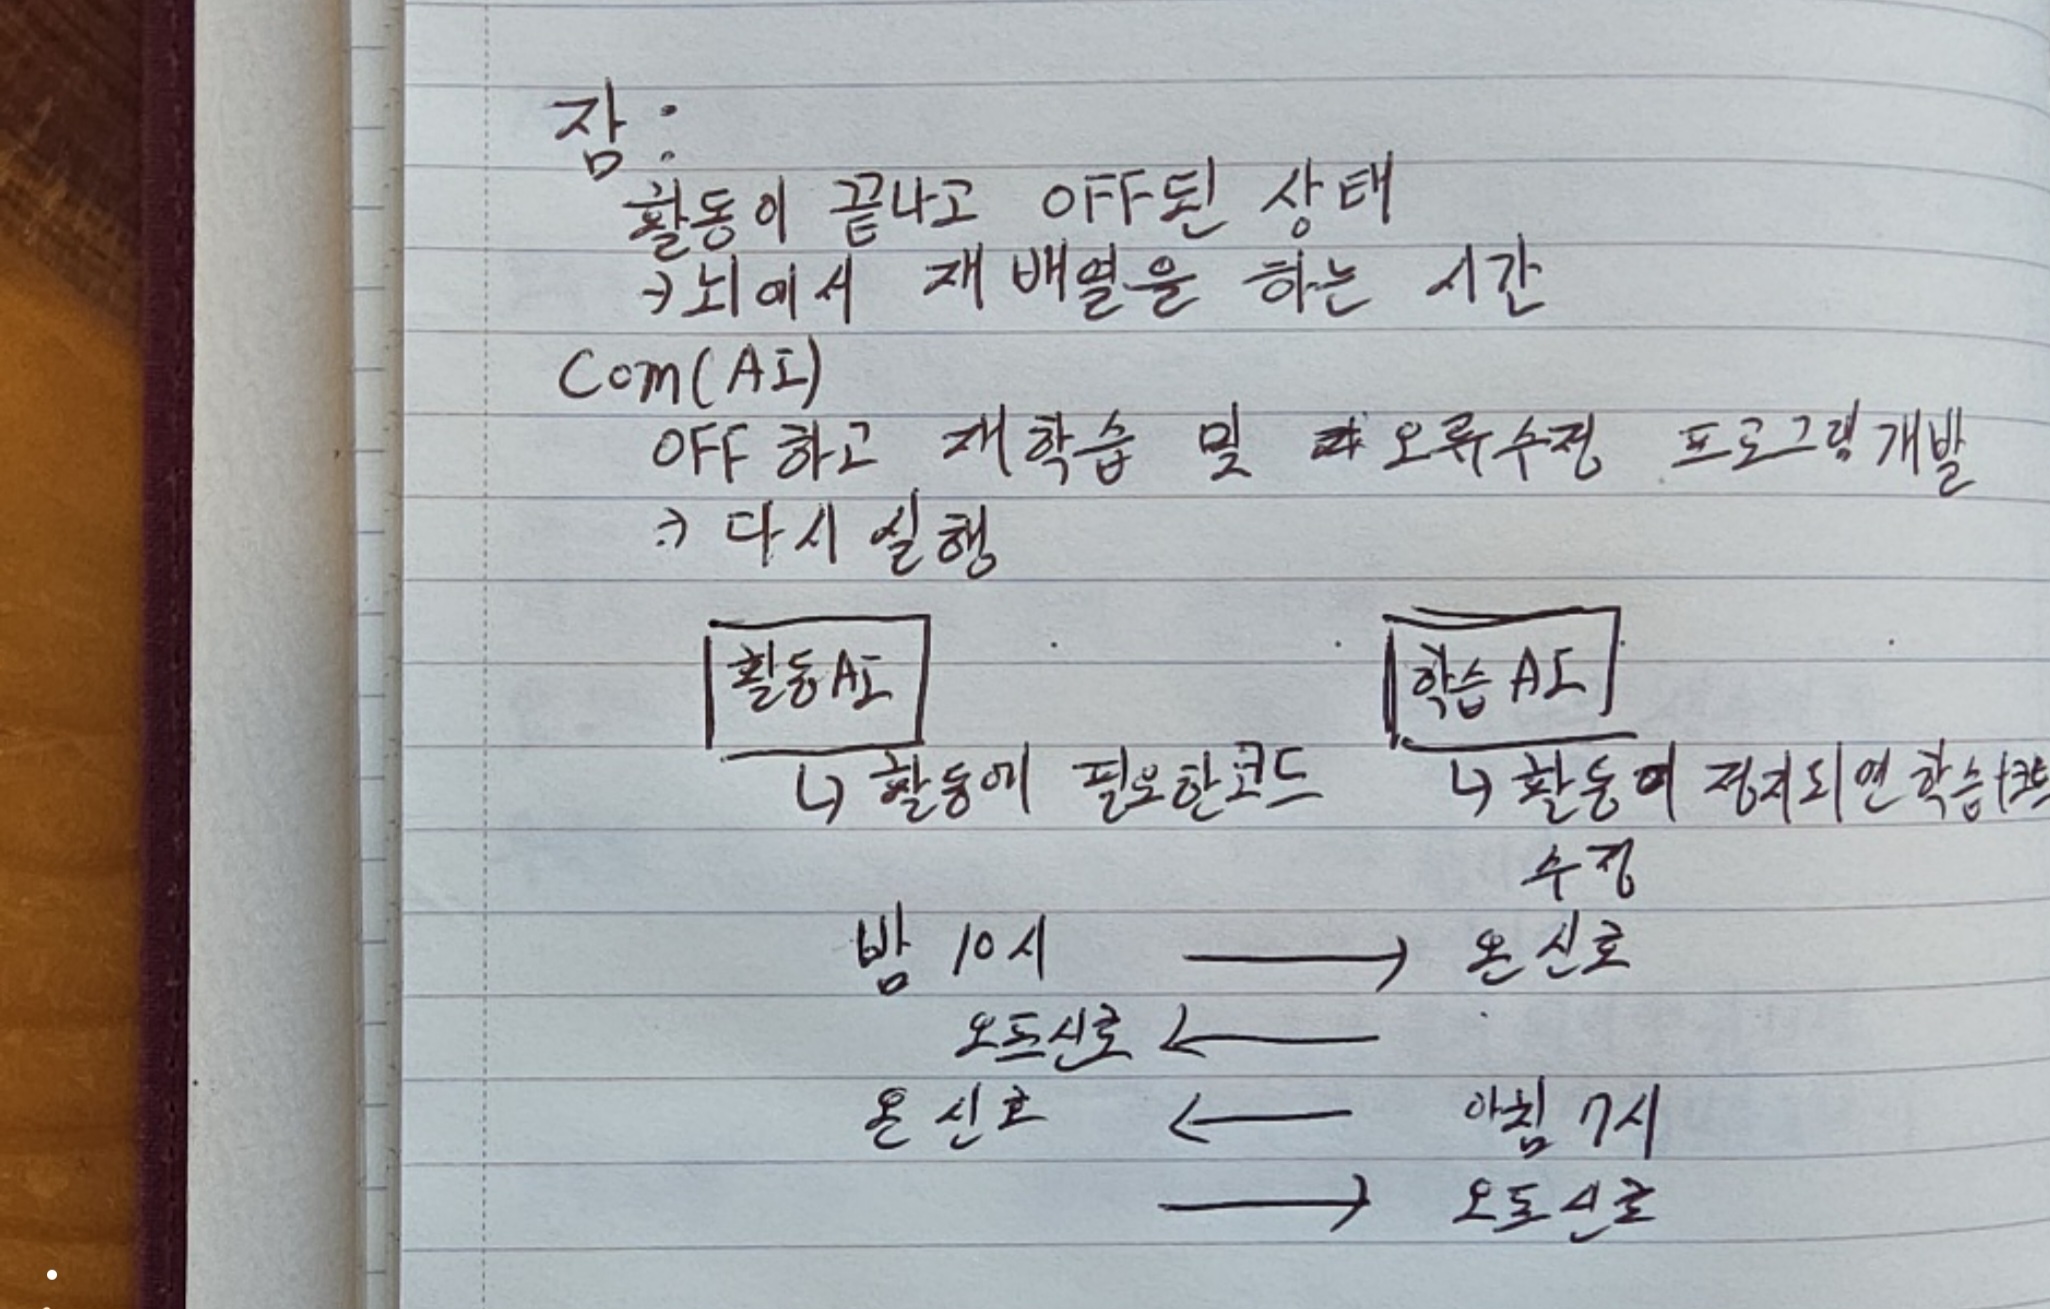 잠 :
활동이 끝나고 OFF된 상태
→ 뇌에서 재배열을 하는 시간
Com(AI)
OFF하고 재학습 및 오류수정 프로그램개발
→ 다시 실행
활동AI 학습AI
↳ 활동에 필요한코드 ↳ 활동이 정지되면 학습+코드
수정
밤 10시 → 온신호
오프신호 ←
온신호 ← 아침 7시
→ 오프신호